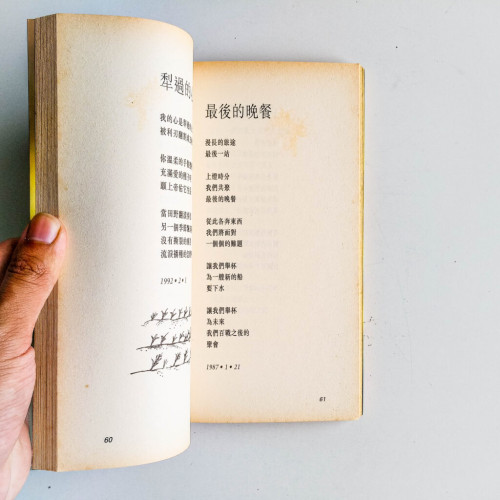 犁過的
我的心是犁過的
被利刃翻
你溫柔的手
充滿愛的種
願上帝給它
當田野翻
另一個季
沒有撕裂的
流淚播種的
1992・2・1
60
最後的晚餐
漫長的旅途
最後一站
上燈時分
我們共進
最後的晚餐
從此各奔東西
我們將面對
一個個的難題
讓我們舉杯
為一艘新的船
要下水
讓我們舉杯
為未來
我們百戰之後的
聚會
1987・1・21
61